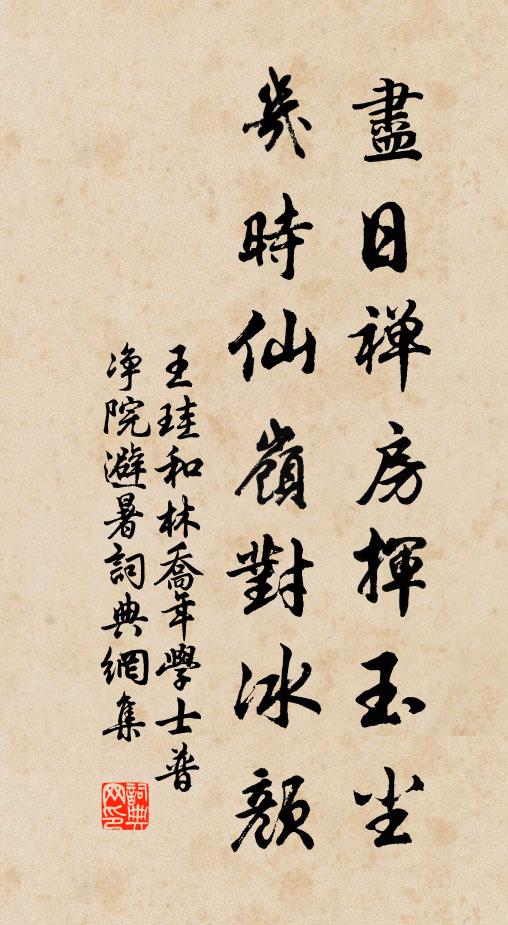 盡日禅房揮玉尘
幾時仙嶺對冰顏
王珪和林喬年學士普
净院避暑詞典網集
詞典
网印